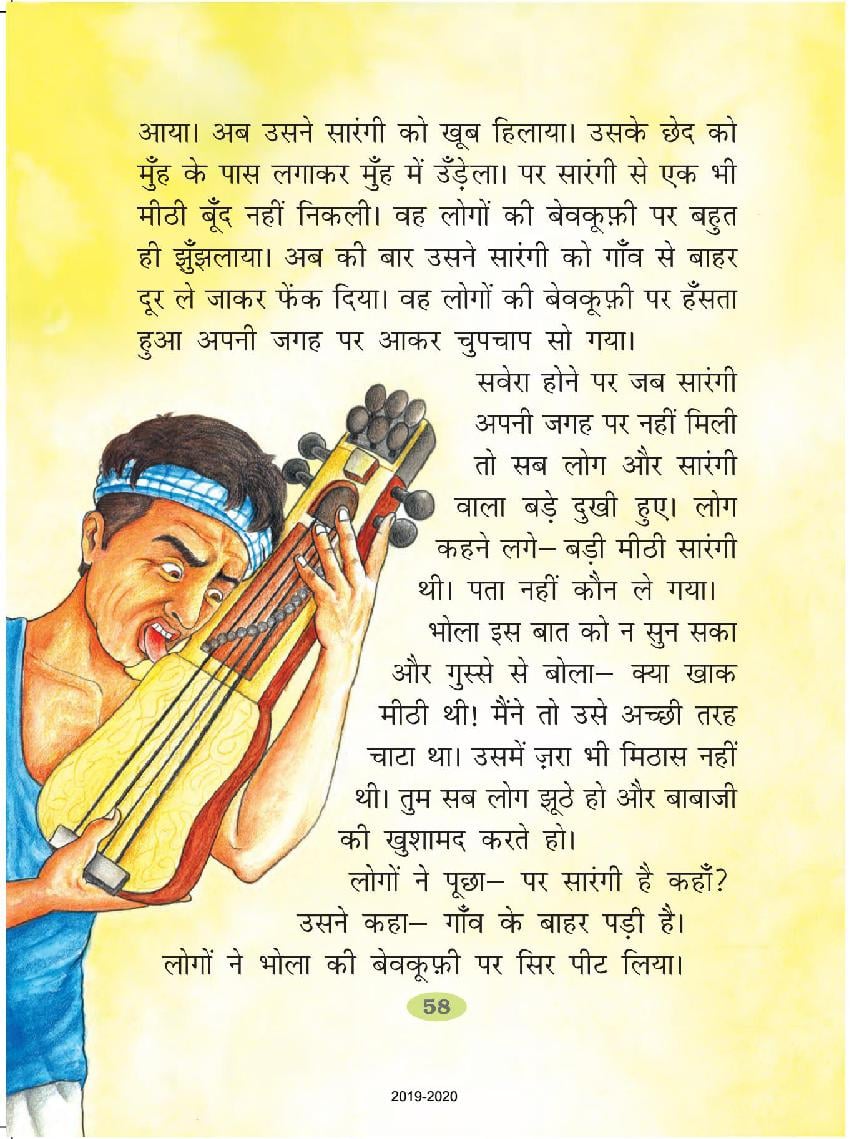 आया। अब उसने सारंगी को खूब हिलाया। उसके छेद को
मुँह के पास लगाकर मुँह में उँड़ेला। पर सारंगी से एक भी
मीठी बूँद नहीं निकली। वह लोगों की बेवकूफ़ी पर बहुत
ही झुँझलाया। अब की बार उसने सारंगी को गाँव से बाहर
दूर ले जाकर फेंक दिया। वह लोगों की बेवकूफ़ी पर हँसता
हुआ अपनी जगह पर आकर चुपचाप सो गया।
सवेरा होने पर जब सारंगी
अपनी जगह पर नहीं मिली
तो सब लोग और सारंगी
वाला बड़े दुखी हुए। लोग
कहने लगे– बड़ी मीठी सारंगी
थी। पता नहीं कौन ले गया।
भोला इस बात को न सुन सका
और गुस्से से बोला– क्या खाक
मीठी थी! मैंने तो उसे अच्छी तरह
चाटा था। उसमें ज़रा भी मिठास नहीं
थी। तुम सब लोग झूठे हो और बाबाजी
की खुशामद करते हो।
लोगों ने पूछा– पर सारंगी है कहाँ?
उसने कहा– गाँव के बाहर पड़ी है।
लोगों ने भोला की बेवकूफ़ी पर सिर पीट लिया।
58
2019-2020